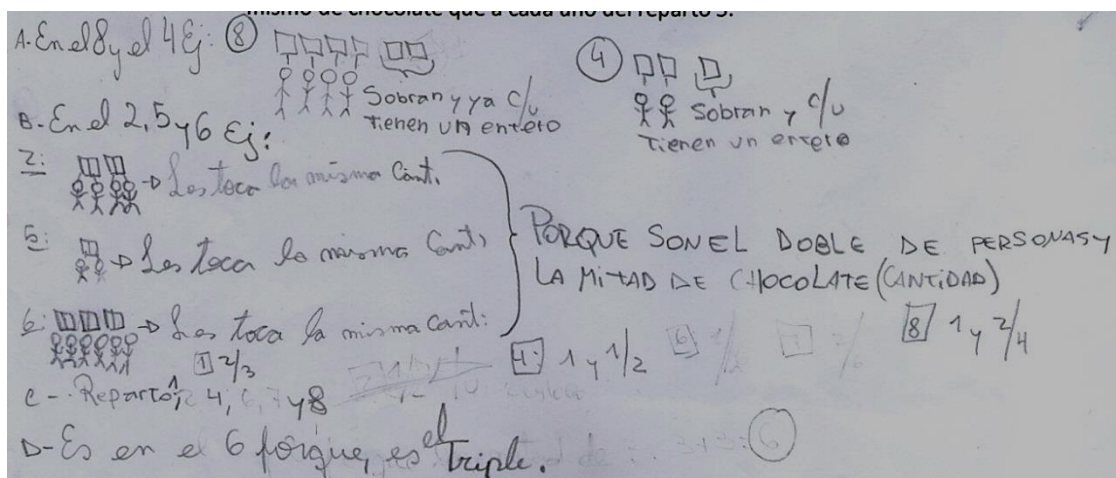 mismo de chocolate que a cada uno del reparto 5.
A. En el 8 y el 4 Ej: 8
4
Sobran y ya c/u
tienen un entero
Sobran y c/u
Tienen un entero
B. En el 2, 5 y 6 Ej:
2: → Les toca la misma Cant.
5: → Les toca la misma Cant.
6: → Les toca la misma Cant:
PORQUE SON EL DOBLE DE PERSONAS Y
LA MITAD DE CHOCOLATE (CANTIDAD)
1 2/3
4: 1 y 1/2
6 1/2
7
8 1 y 2/4
C - Reparto 1, 4, 6, 7 y 8
D - Es en el 6 porque, es el Triple.
3+3: 6